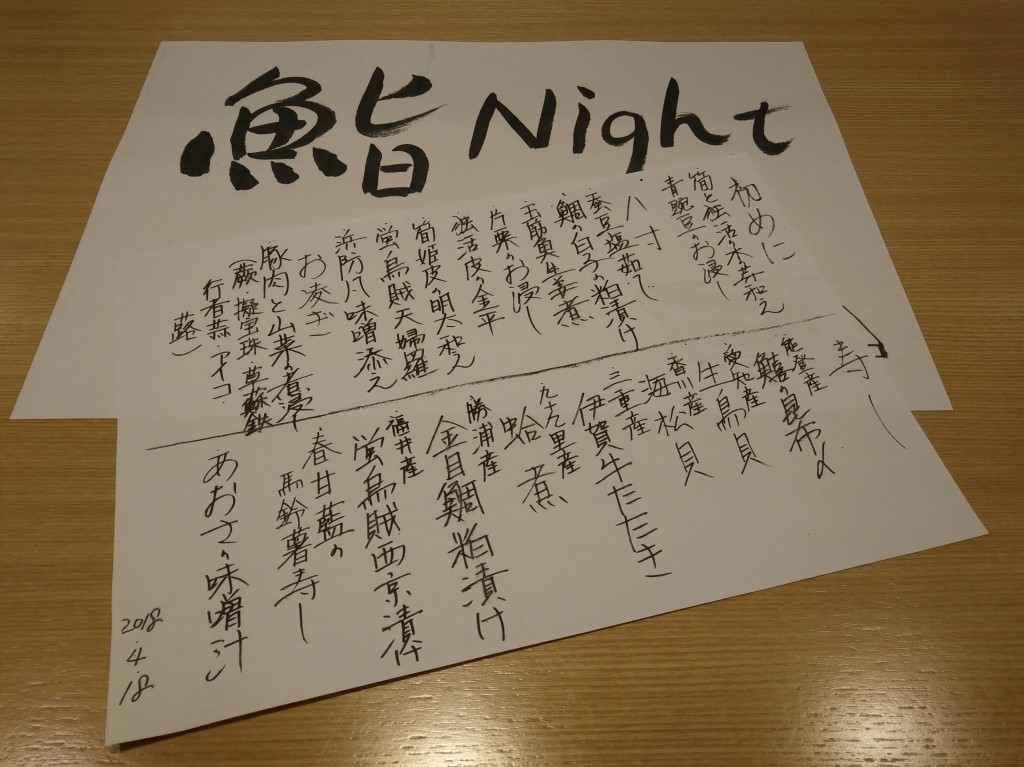 鮨 Night
初めに
筍と独活の木の芽和え
青豌豆のお浸し
八寸
蚕豆塩茹で
鯛の白子の粕漬け
玉筋魚生姜煮
片栗のお浸し
独活皮の金平
筍姫皮の明太和え
蛍烏賊天婦羅
浜防風味噌添え
お凌ぎ
豚肉と山菜の煮浸し
(蕨 擬宝珠 草蘇鉄
行者蒜 アイコ
蕗)
寿し
能登産
鱚の昆布〆
愛知産
生鳥貝
香川産
海松貝
三重産
伊賀牛たたき
九十九里産
蛤煮
勝浦産
金目鯛粕漬け
福井産
蛍烏賊西京漬け
春甘藍の
馬鈴薯寿し
あおさの味噌汁
2018
4
18